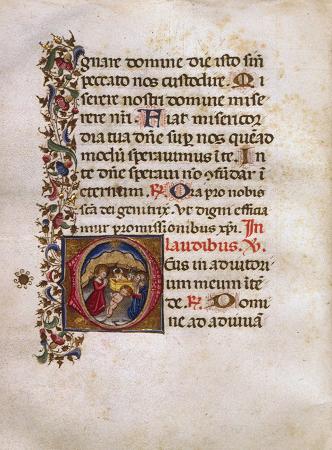 gnare domine die isto sin̄
peccato nos custodire. Mi
serere nostri domine mise
rere nr̄i. Fiat misericor
dia tua dn̄e sup̱ nos quēad
modū speravimus in te. In
te dn̄e speravi nō cōfūdar ī
eternum. R. Ora pro nobis
sc̄a dei genitrix. Ut digni effici a
mur promissionibus xp̄i. In
laudibus. V.
Deus in adiutori
um meum ītē
de. R. Domi
ne ad adiuvā